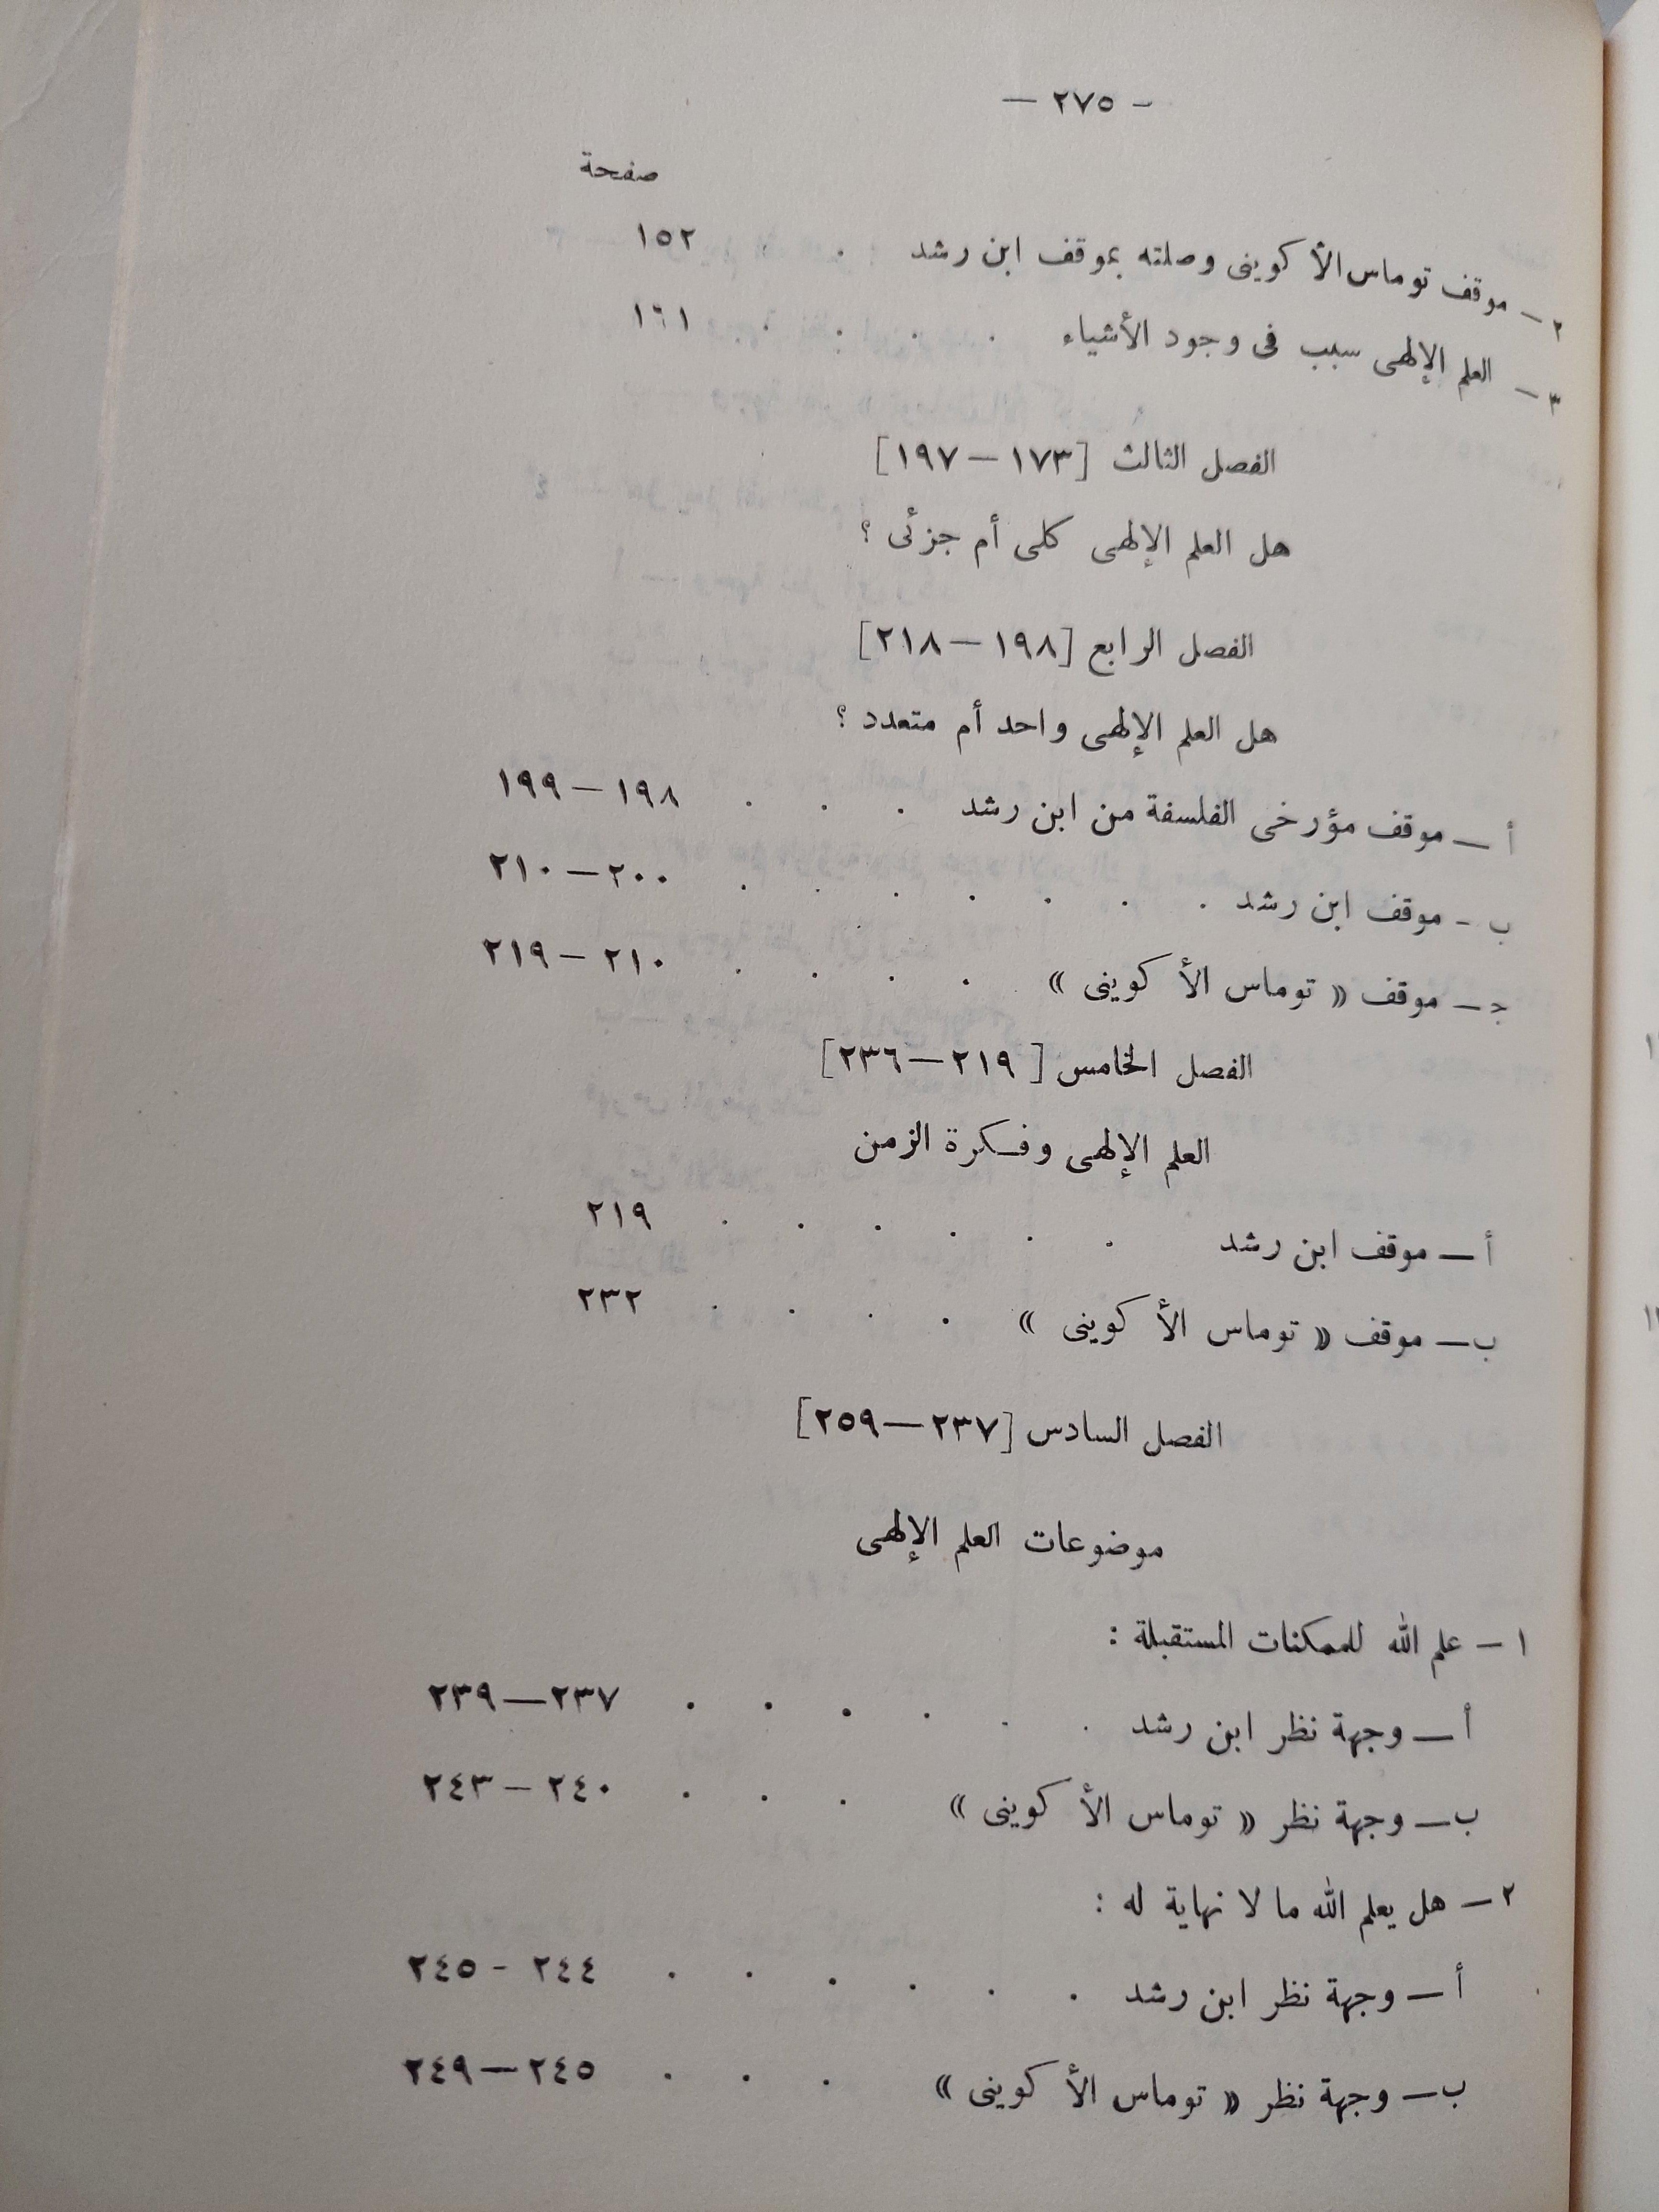 - ٢٧٥ —
صفحة
٢ — موقف توماس الأكوينى وصلته بموقف ابن رشد . . ١٥٢
٣ — العلم الإلهى سبب فى وجود الأشياء . . . . ١٦١
الفصل الثالث [١٧٣ — ١٩٧]
هل العلم الإلهى كلى أم جزئى ؟
الفصل الرابع [١٩٨ — ٢١٨]
هل العلم الإلهى واحد أم متعدد ؟
أ — موقف مؤرخى الفلسفة من ابن رشد . . . ١٩٨ — ١٩٩
ب - موقف ابن رشد . . . . . . . ٢٠٠ — ٢١٠
ج — موقف « توماس الأكوينى » . . . . ٢١٠ — ٢١٩
الفصل الخامس [ ٢١٩ — ٢٣٦]
العلم الإلهى وفكرة الزمن
أ — موقف ابن رشد . . . . . . ٢١٩
ب — موقف « توماس الأكوينى » . . . . ٢٣٢
الفصل السادس [٢٣٧ — ٢٥٩]
موضوعات العلم الإلهى
١ — علم الله للممكنات المستقبلة :
أ — وجهة نظر ابن رشد . . . . . . ٢٣٧ — ٢٣٩
ب — وجهة نظر « توماس الأكوينى » . . . ٢٤٠ — ٢٤٣
٢ — هل يعلم الله ما لا نهاية له :
أ — وجهة نظر ابن رشد . . . . . . ٢٤٤ - ٢٤٥
ب — وجهة نظر « توماس الأكوينى » . . . ٢٤٥ — ٢٤٩